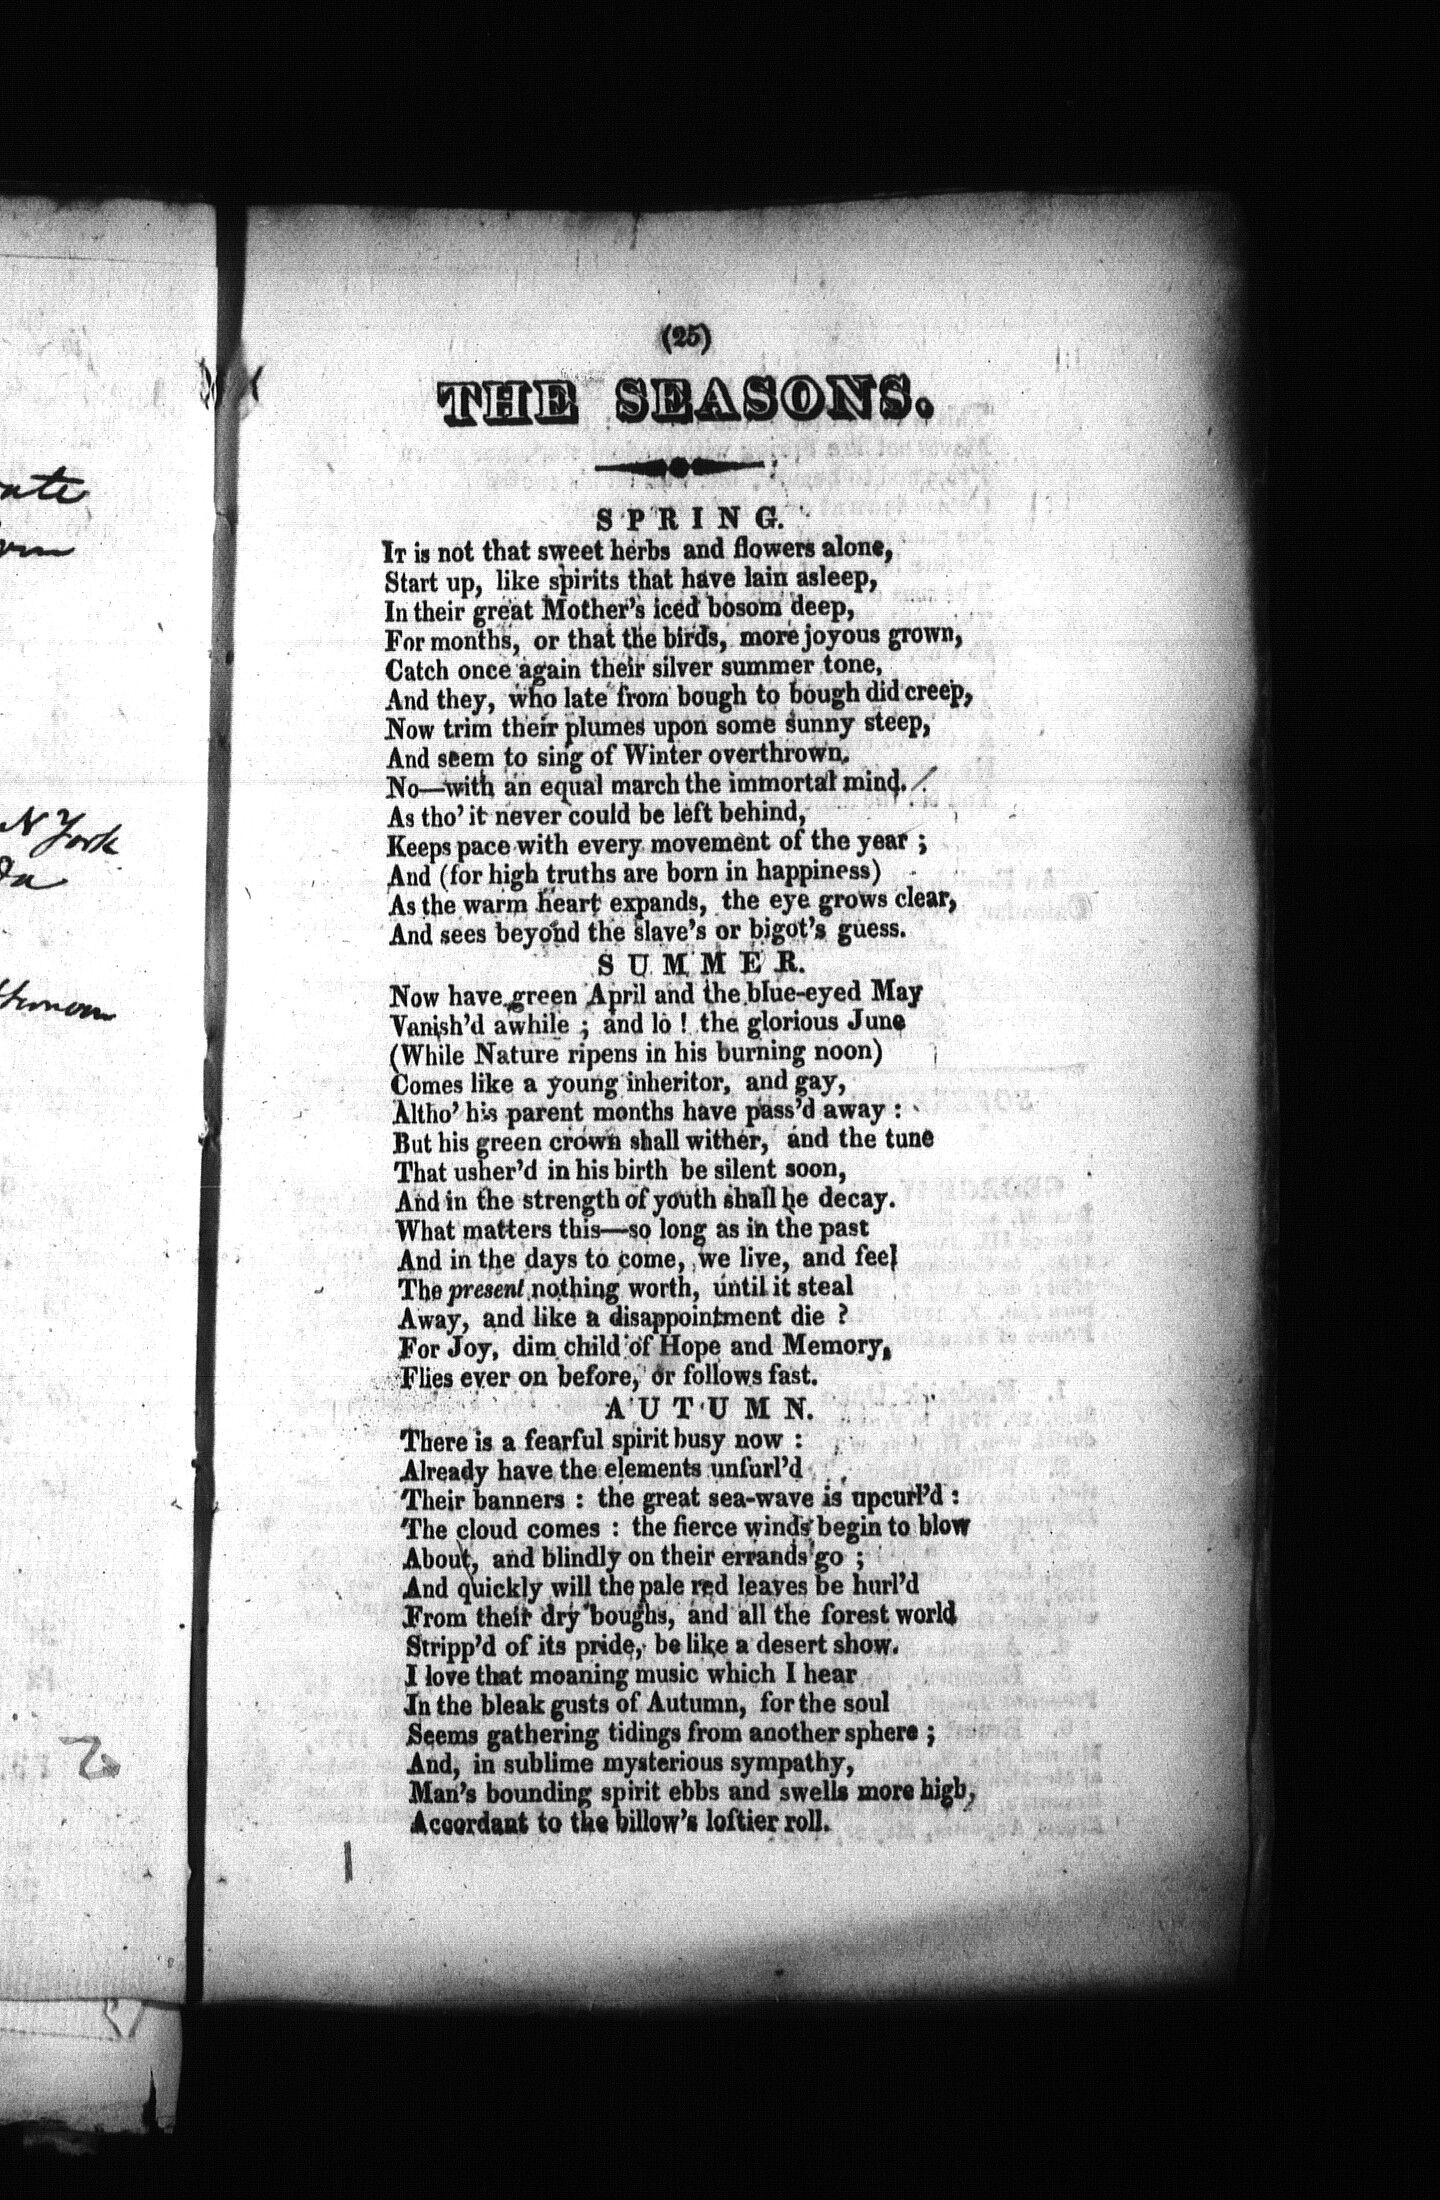 (25)
THE SEASONS.
SPRING.
IT is not that sweet herbs and flowers alone,
Start up, like spirits that have lain asleep,
In their great Mother's iced bosom deep,
For months, or that the birds, more joyous grown,
Catch once again their silver summer tone,
And they, who late from bough to bough did creep,
Now trim their plumes upon some sunny steep,
And seem to sing of Winter overthrown.
No—with an equal march the immortal mind.
As tho' it never could be left behind,
Keeps pace with every movement of the year ;
And (for high truths are born in happiness)
As the warm heart expands, the eye grows clear,
And sees beyond the slave's or bigot's guess.
SUMMER.
Now have green April and the blue-eyed May
Vanish'd awhile ; and lo ! the glorious June
(While Nature ripens in his burning noon)
Comes like a young inheritor, and gay,
Altho' his parent months have pass'd away :
But his green crown shall wither, and the tune
That usher'd in his birth be silent soon,
And in the strength of youth shall he decay.
What matters this—so long as in the past
And in the days to come, we live, and feel
The present nothing worth, until it steal
Away, and like a disappointment die ?
For Joy, dim child of Hope and Memory,
Flies ever on before, or follows fast.
AUTUMN.
There is a fearful spirit busy now :
Already have the elements unfurl'd
Their banners : the great sea-wave is upcurl'd :
The cloud comes : the fierce winds begin to blow
About, and blindly on their errands go ;
And quickly will the pale red leaves be hurl'd
From their dry boughs, and all the forest world
Stripp'd of its pride, be like a desert show.
I love that moaning music which I hear
In the bleak gusts of Autumn, for the soul
Seems gathering tidings from another sphere ;
And, in sublime mysterious sympathy,
Man's bounding spirit ebbs and swells more high,
Accordant to the billow's loftier roll.
N York